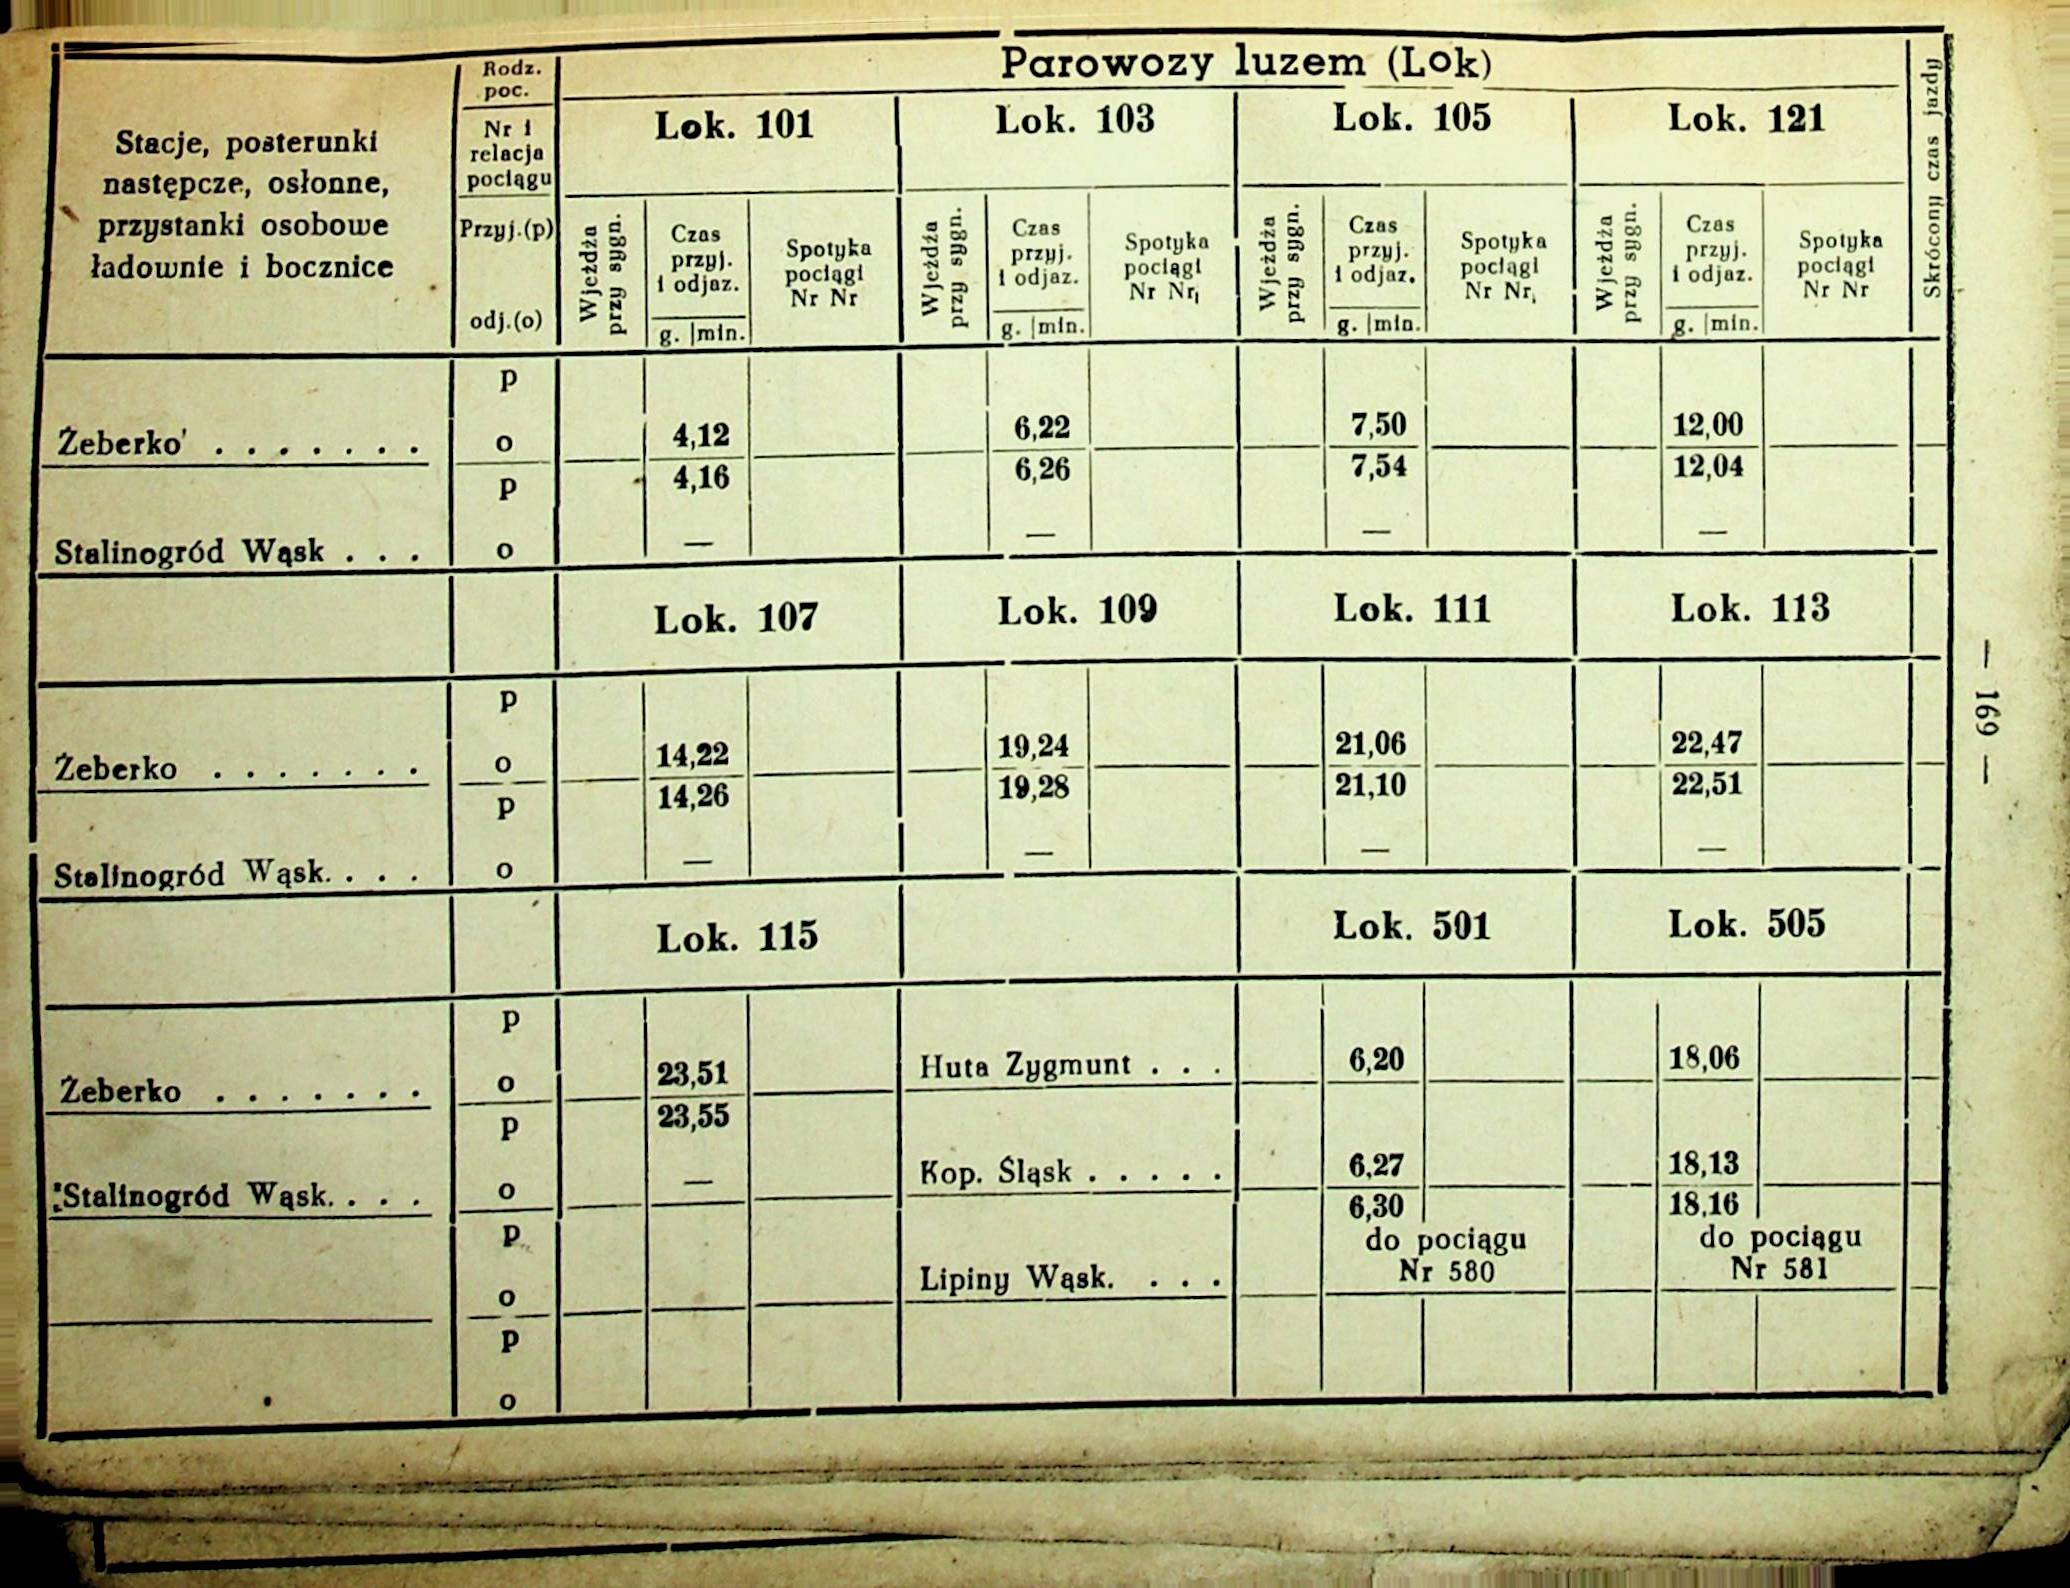 Parowozy luzem (Lok)
Stacje, posterunki
następcze, osłonne,
przystanki osobowe
ładownie i bocznice
Rodz.
poc.
Nr i
relacja
pociągu
Przyj.(p)
odj.(o)
Lok. 101 Lok. 103 Lok. 105 Lok. 121
Wjeżdża
przy sygn.
Czas
przyj.
i odjaz.
g. |min.
Spotyka
pociągi
Nr Nr
Wjeżdża
przy sygn.
Czas
przyj.
i odjaz.
g. |min.
Spotyka
pociągi
Nr Nr
Wjeżdża
przy sygn.
Czas
przyj.
i odjaz.
g. |min.
Spotyka
pociągi
Nr Nr
Wjeżdża
przy sygn.
Czas
przyj.
i odjaz.
g. |min.
Spotyka
pociągi
Nr Nr
Skrócony czas jazdy
p
Żeberko . . . . . . . o 4,12 6,22 7,50 12,00
p 4,16 6,26 7,54 12,04
Stalinogród Wąsk . . . o — — — —
Lok. 107 Lok. 109 Lok. 111 Lok. 113
p
Żeberko . . . . . . . o 14,22 19,24 21,06 22,47
p 14,26 19,28 21,10 22,51
Stalinogród Wąsk. . . . o — — — —
Lok. 115 Lok. 501 Lok. 505
p
Żeberko . . . . . . . o 23,51 Huta Zygmunt . . . 6,20 18,06
p 23,55
Stalinogród Wąsk. . . . o — Kop. Śląsk . . . . . 6,27 18,13
p 6,30 18,16
do pociągu do pociągu
o Lipiny Wąsk. . . . Nr 580 Nr 581
p
o
— 169 —